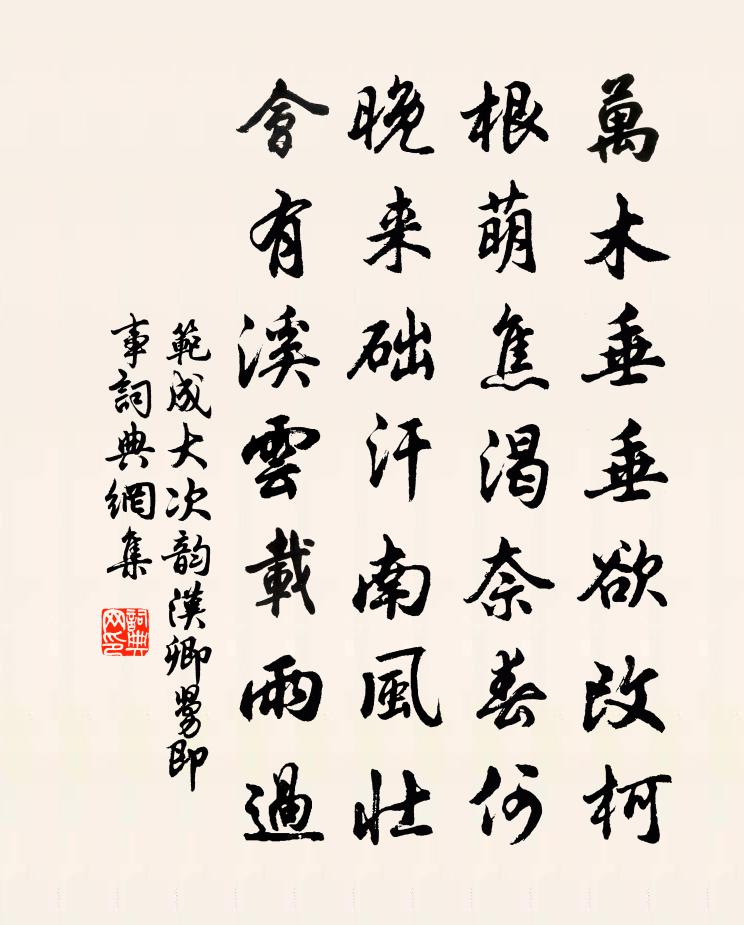 萬木垂垂欲改柯
根萌焦渴奈春何
晚来础汗南風壮
會有溪雲載雨過
範成大次韵漢卿舅即
事詞典網集
詞典
网印